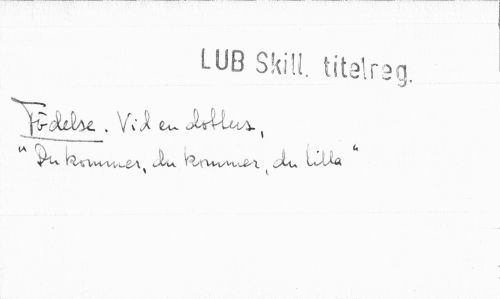 LUB Skill. titelreg.
Födelse. Vid en dotters,
"Du kommer, du kommer, du lilla"